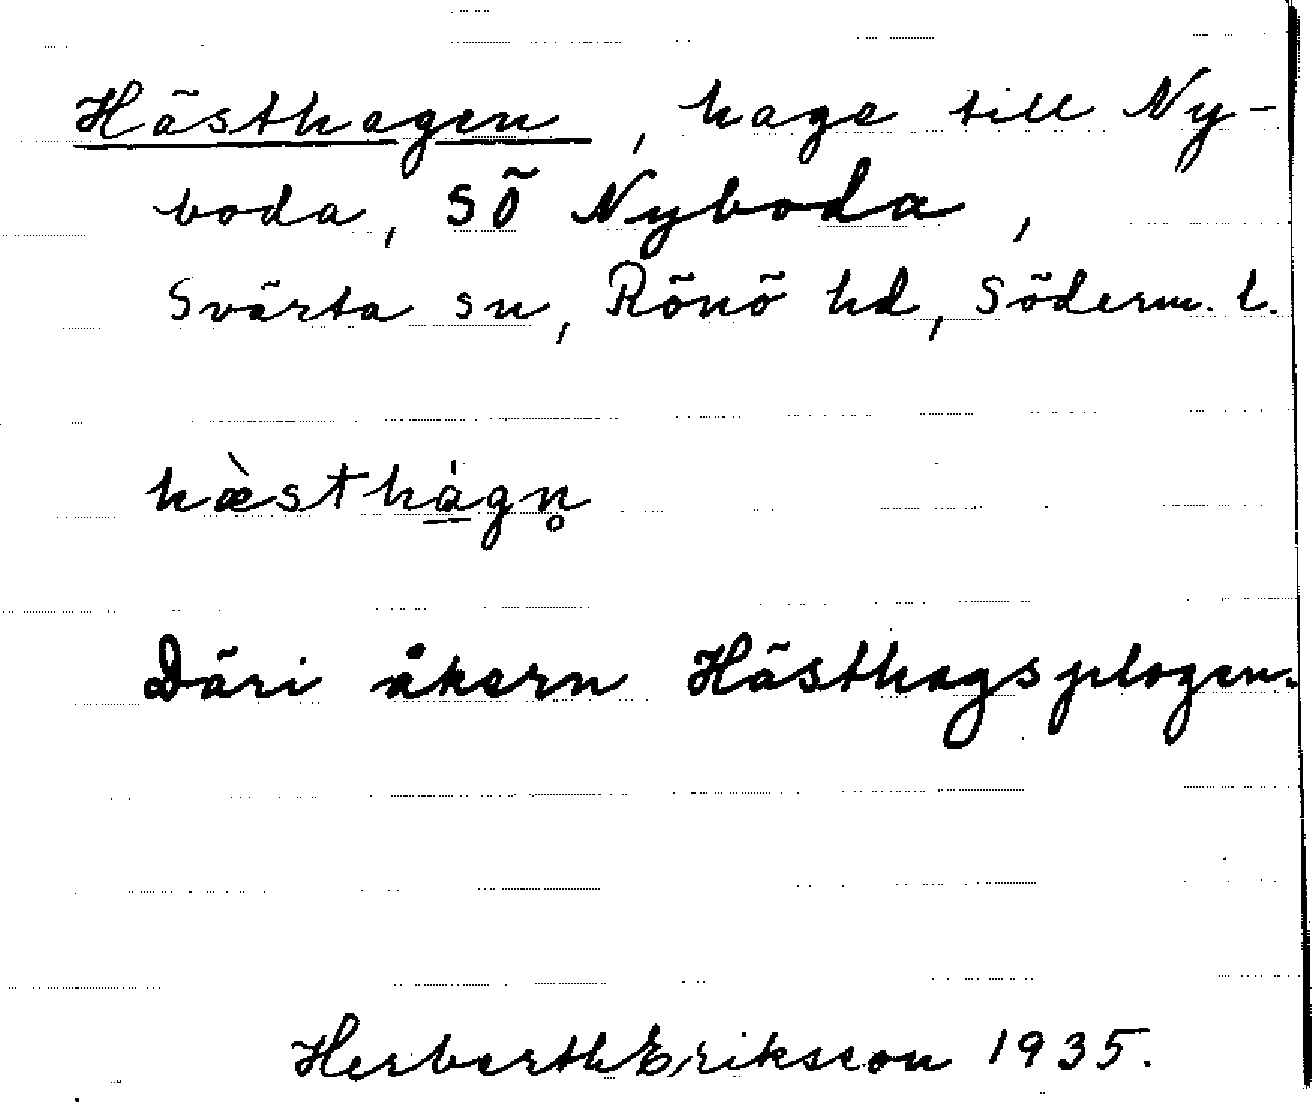 Hästhagen, hage till Ny-
boda, SÖ Nyboda,
Svärta sn, Rönö hd, Söderm. l.
hæ̀sthàgn̥
Däri åkern Hästhagsplogen.
Herberth Erikson 1935.